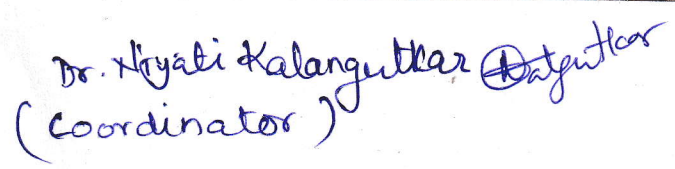 Dr. Niyati Kalangutkar
(Coordinator)